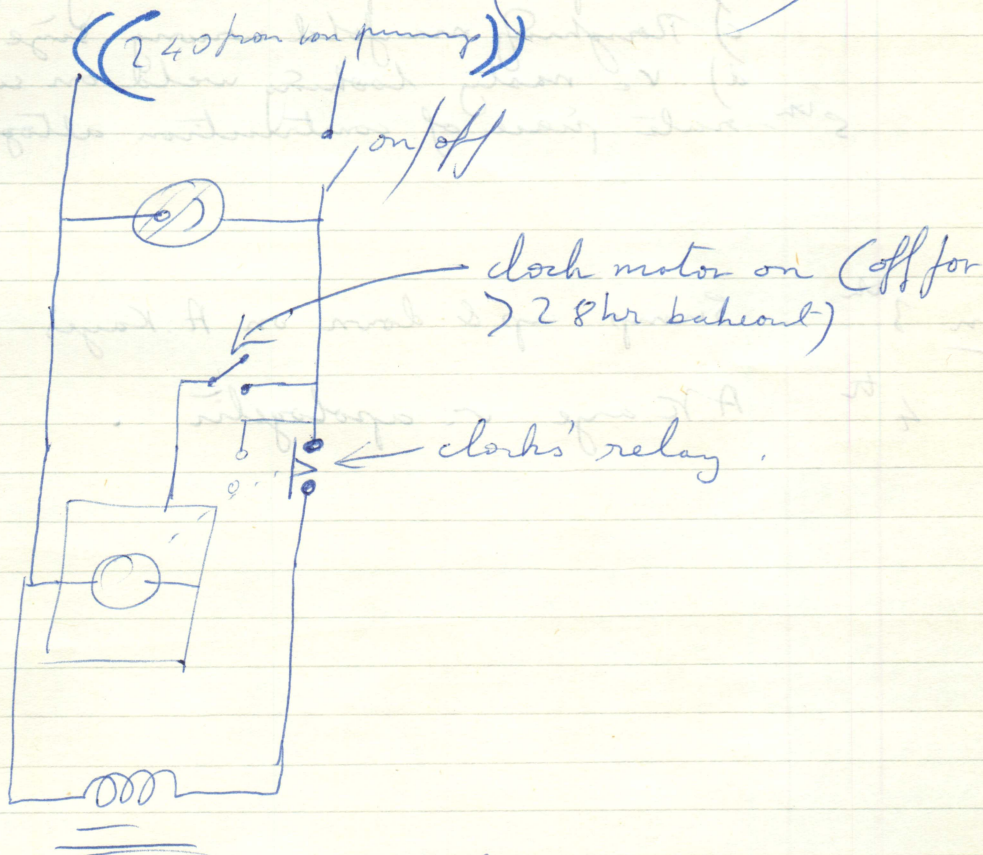 ((240 from ion pumps))
on/off
clock motor on (off for
>28hr bakeout)
clocks' relay.